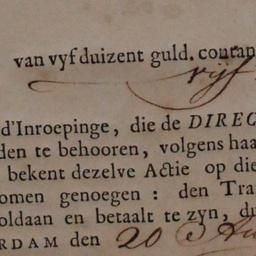 van vyf duizent guld. contan
vyf
d'Inroepinge, die de DIREC
den te behooren, volgens haa
bekent dezelve Actie op die
omen genoegen: den Tra
oldaan en betaalt te zyn, du
RDAM den 20